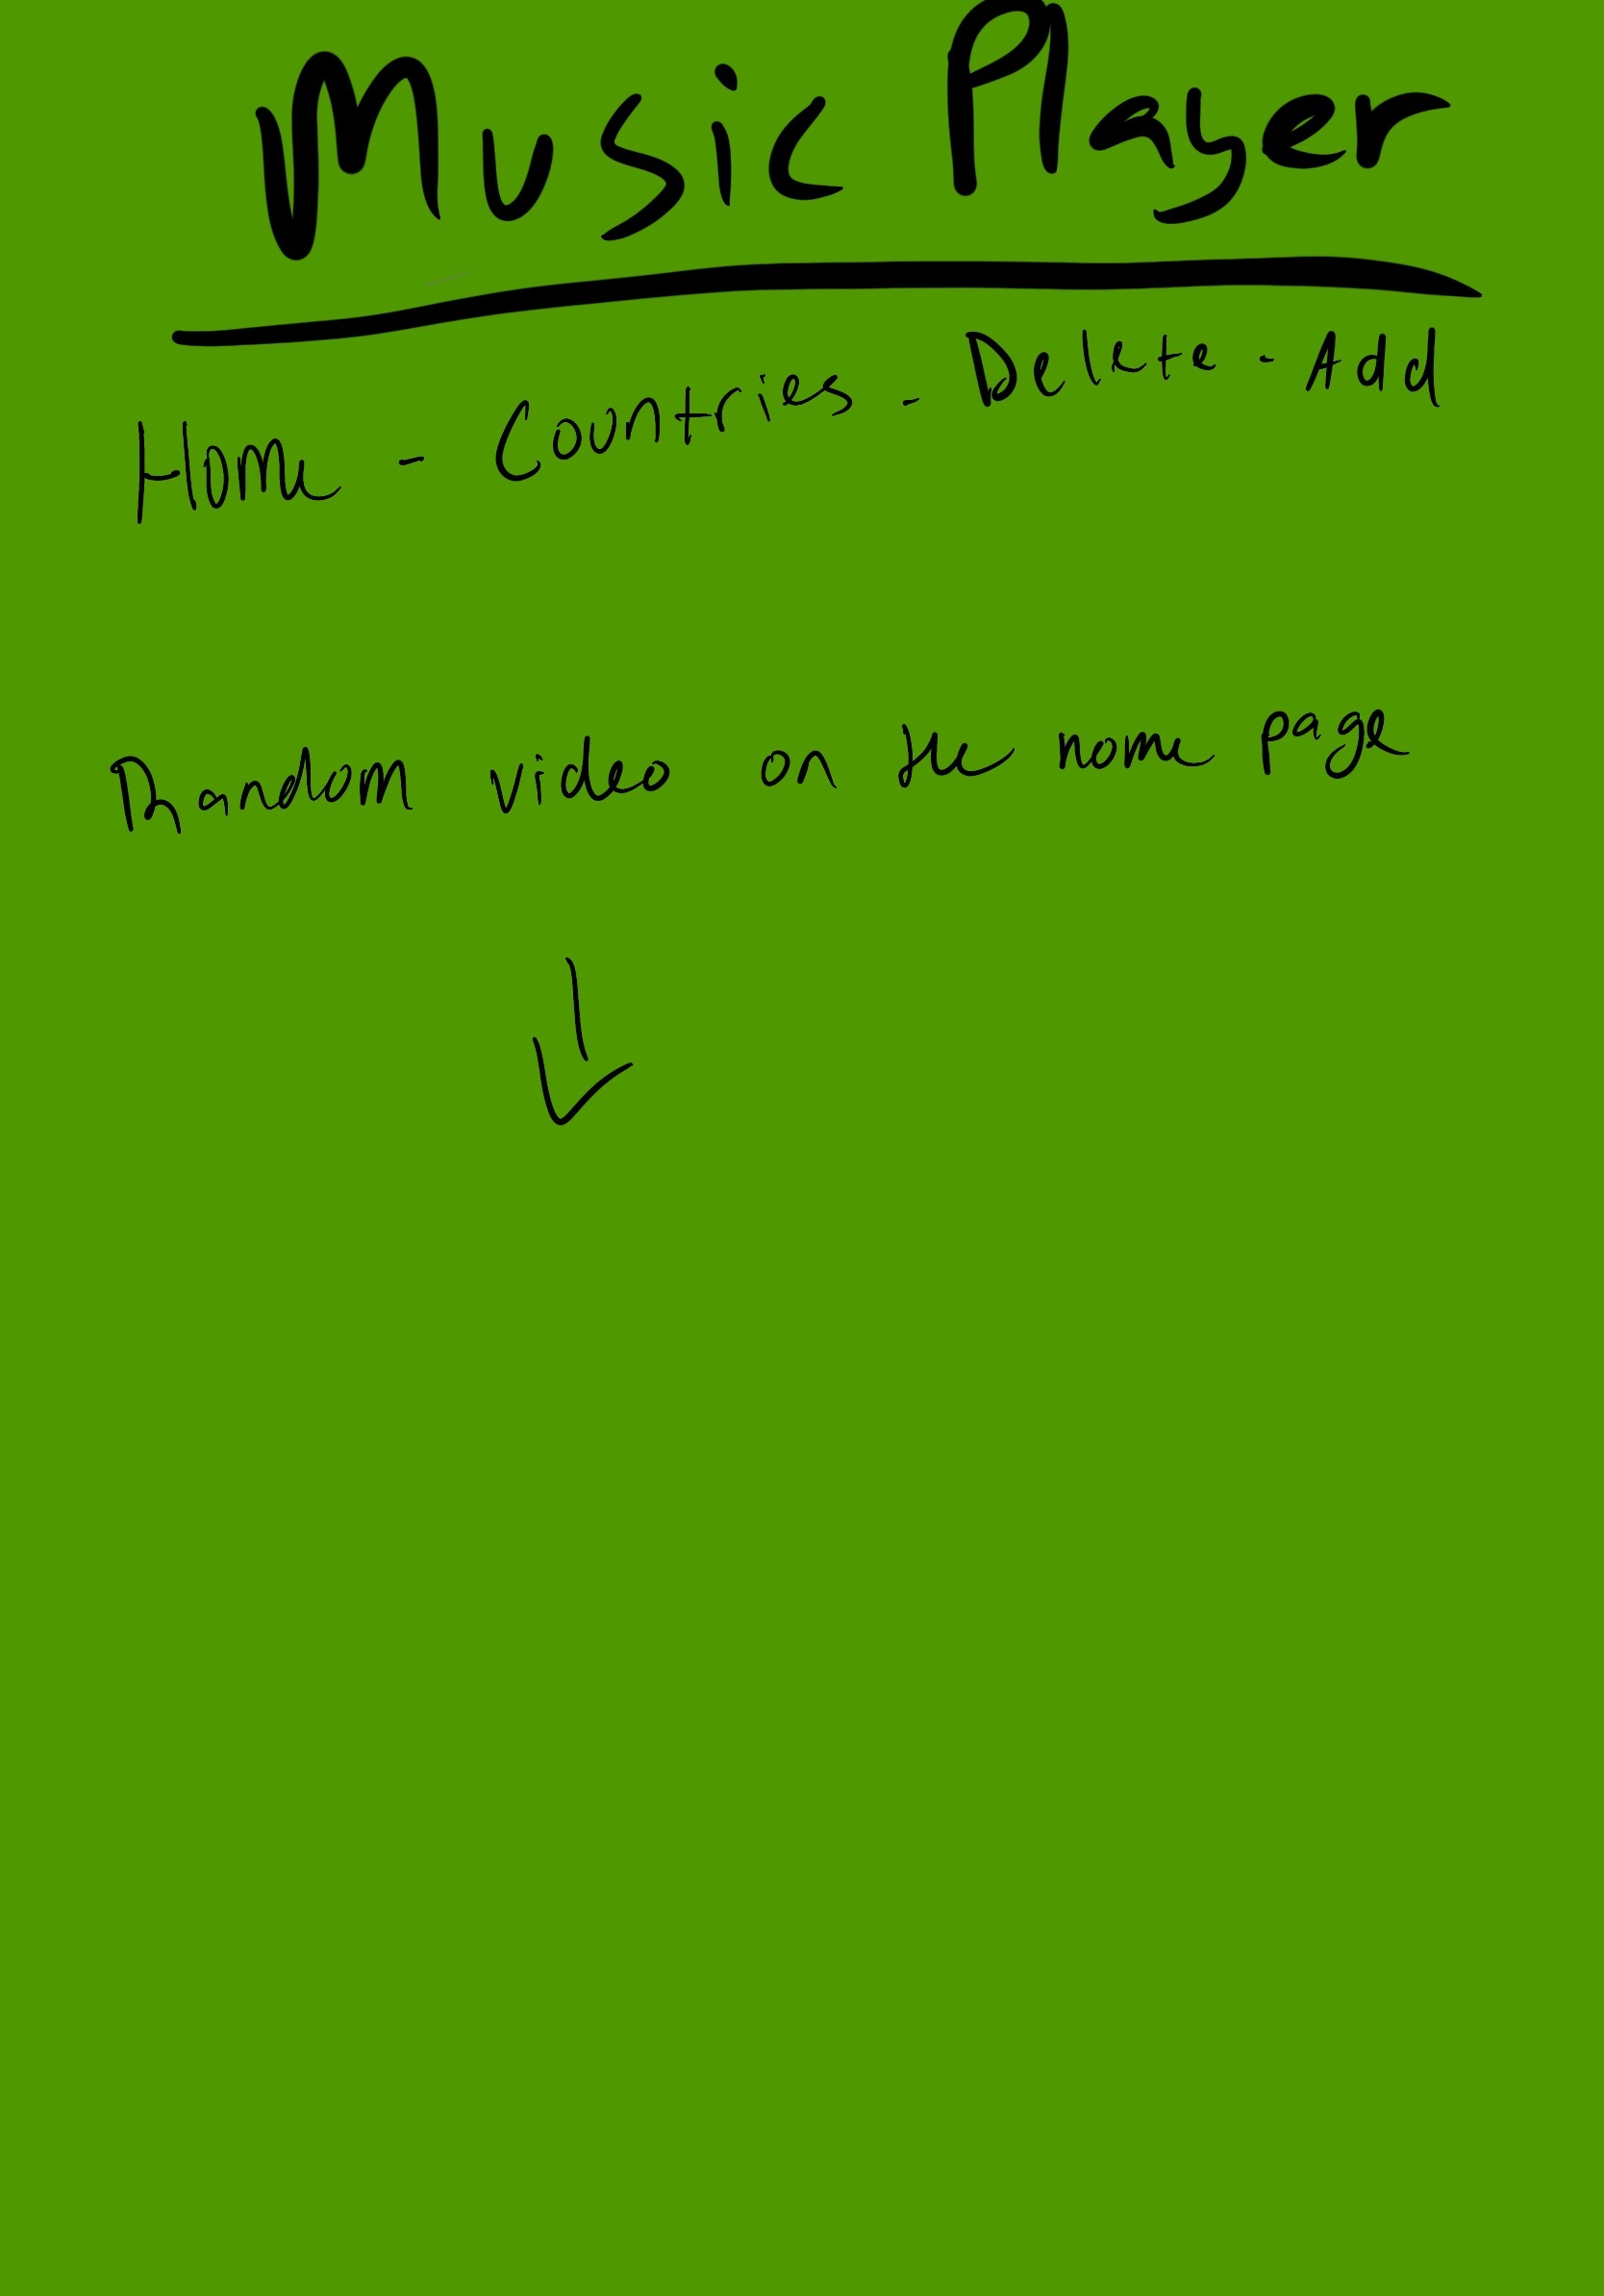 Music Player
Home - Countries - Delete - Add
Random video on the home page